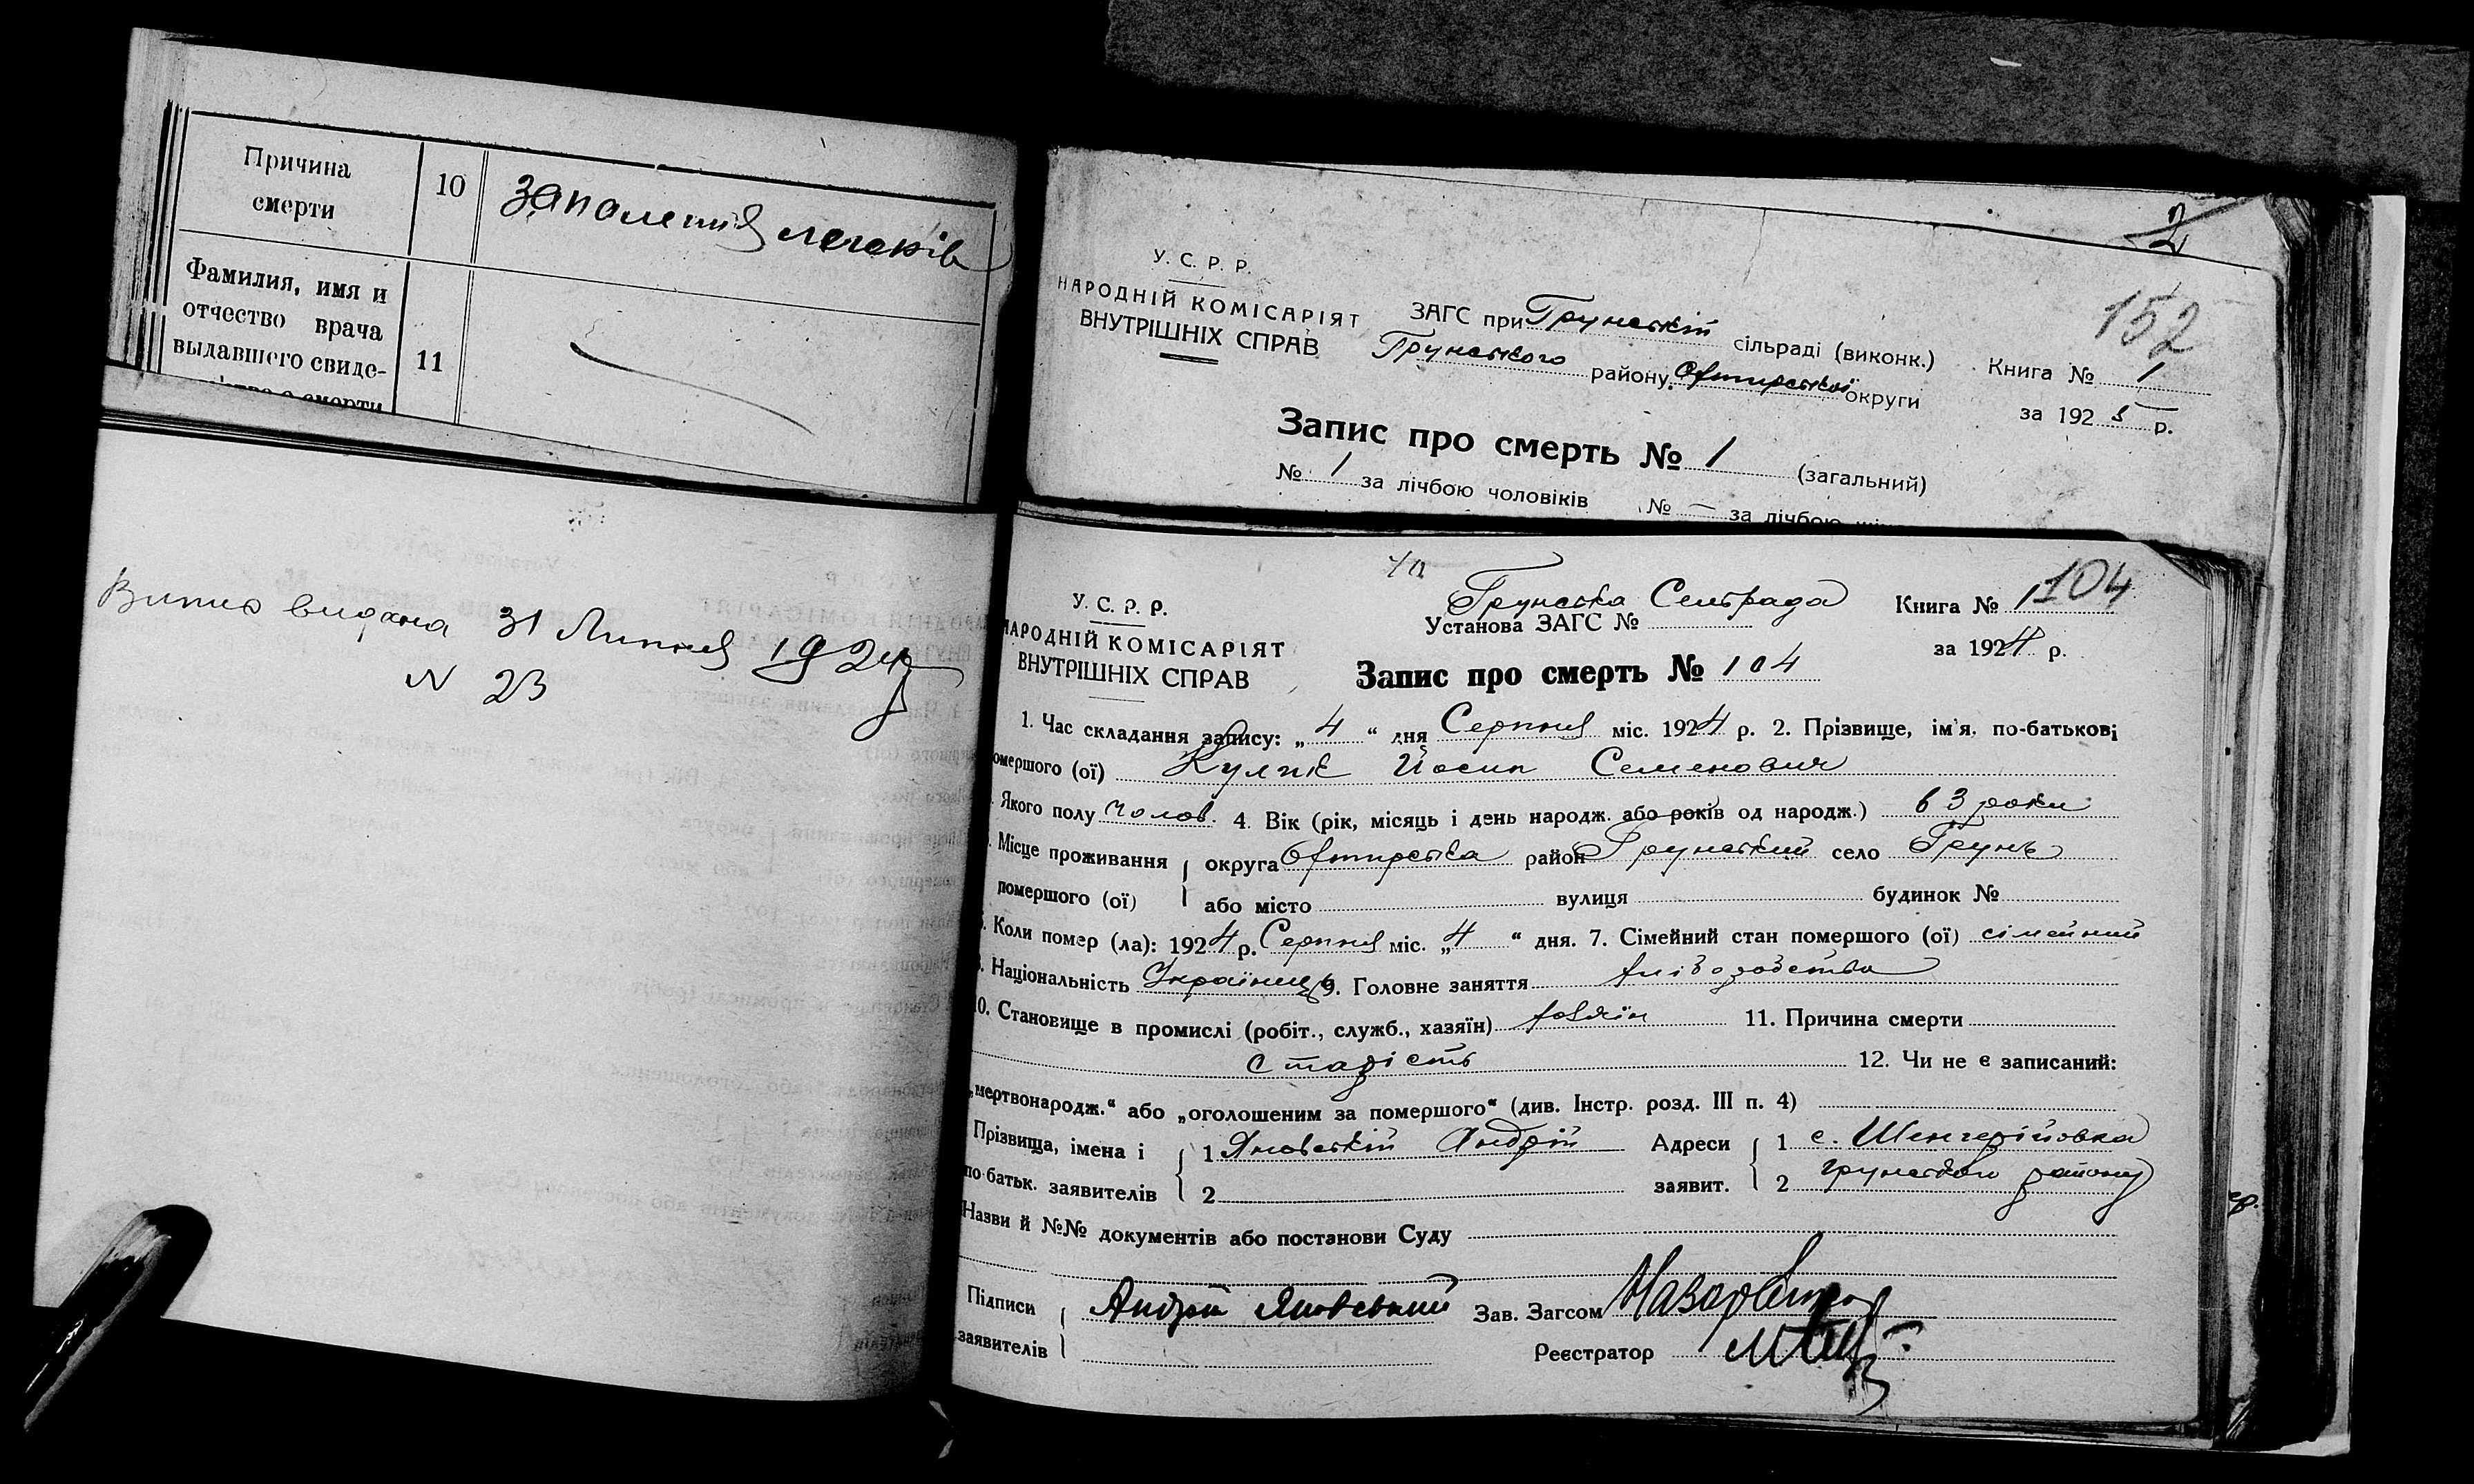 Причина смерти 10 запалення легенів
Фамилия, имя и
отчество врача
выдавшего свиде- 11
Випис видана 31 Липня 1924 р
N 23
2
152
У. С. Р. Р.
НАРОДНІЙ КОМІСАРІЯТ
ВНУТРІШНІХ СПРАВ
ЗАГС при Грунській сільраді (виконк.)
Грунського району Охтирської округи
Книга № 1
за 1925 р.
Запис про смерть № 1 (загальний)
№ 1 за лічбою чоловіків № — за лічбою
104
У. С. Р. Р.
НАРОДНІЙ КОМІСАРІЯТ
ВНУТРІШНІХ СПРАВ
Грунська Сельрада
Установа ЗАГС №
Книга № 1
за 1924 р.
Запис про смерть № 104
1. Час складання запису: „4“ дня Серпня міс. 1924 р. 2. Прізвище, ім'я, по-батькові
омершого (ої) Кулик Йосип Семенович
Якого полу чолов. 4. Вік (рік, місяць і день народж. або років од народж.) 63 роки
Місце проживання округа Охтирська район Грунський село Грунь
помершого (ої) або місто вулиця будинок №
Коли помер (ла): 1924 р. Серпня міс. „4“ дня. 7. Сімейний стан помершого (ої) сімейний
Національність Українець 9. Головне заняття хліборобство
10. Становище в промислі (робіт., служб., хазяїн) хазяїн 11. Причина смерти
старість 12. Чи не є записаний:
„мертвонародж.“ або „оголошеним за помершого“ (див. Інстр. розд. III п. 4)
Прізвища, імена і 1 Яновській Андрій Адреси 1 с. Шенгерійовка
по батьк. заявителів 2 заявит. 2 грунського району
Назви й №№ документів або постанови Суду
Підписи Андрій Яновський Зав. Загсом
заявителів Реєстратор